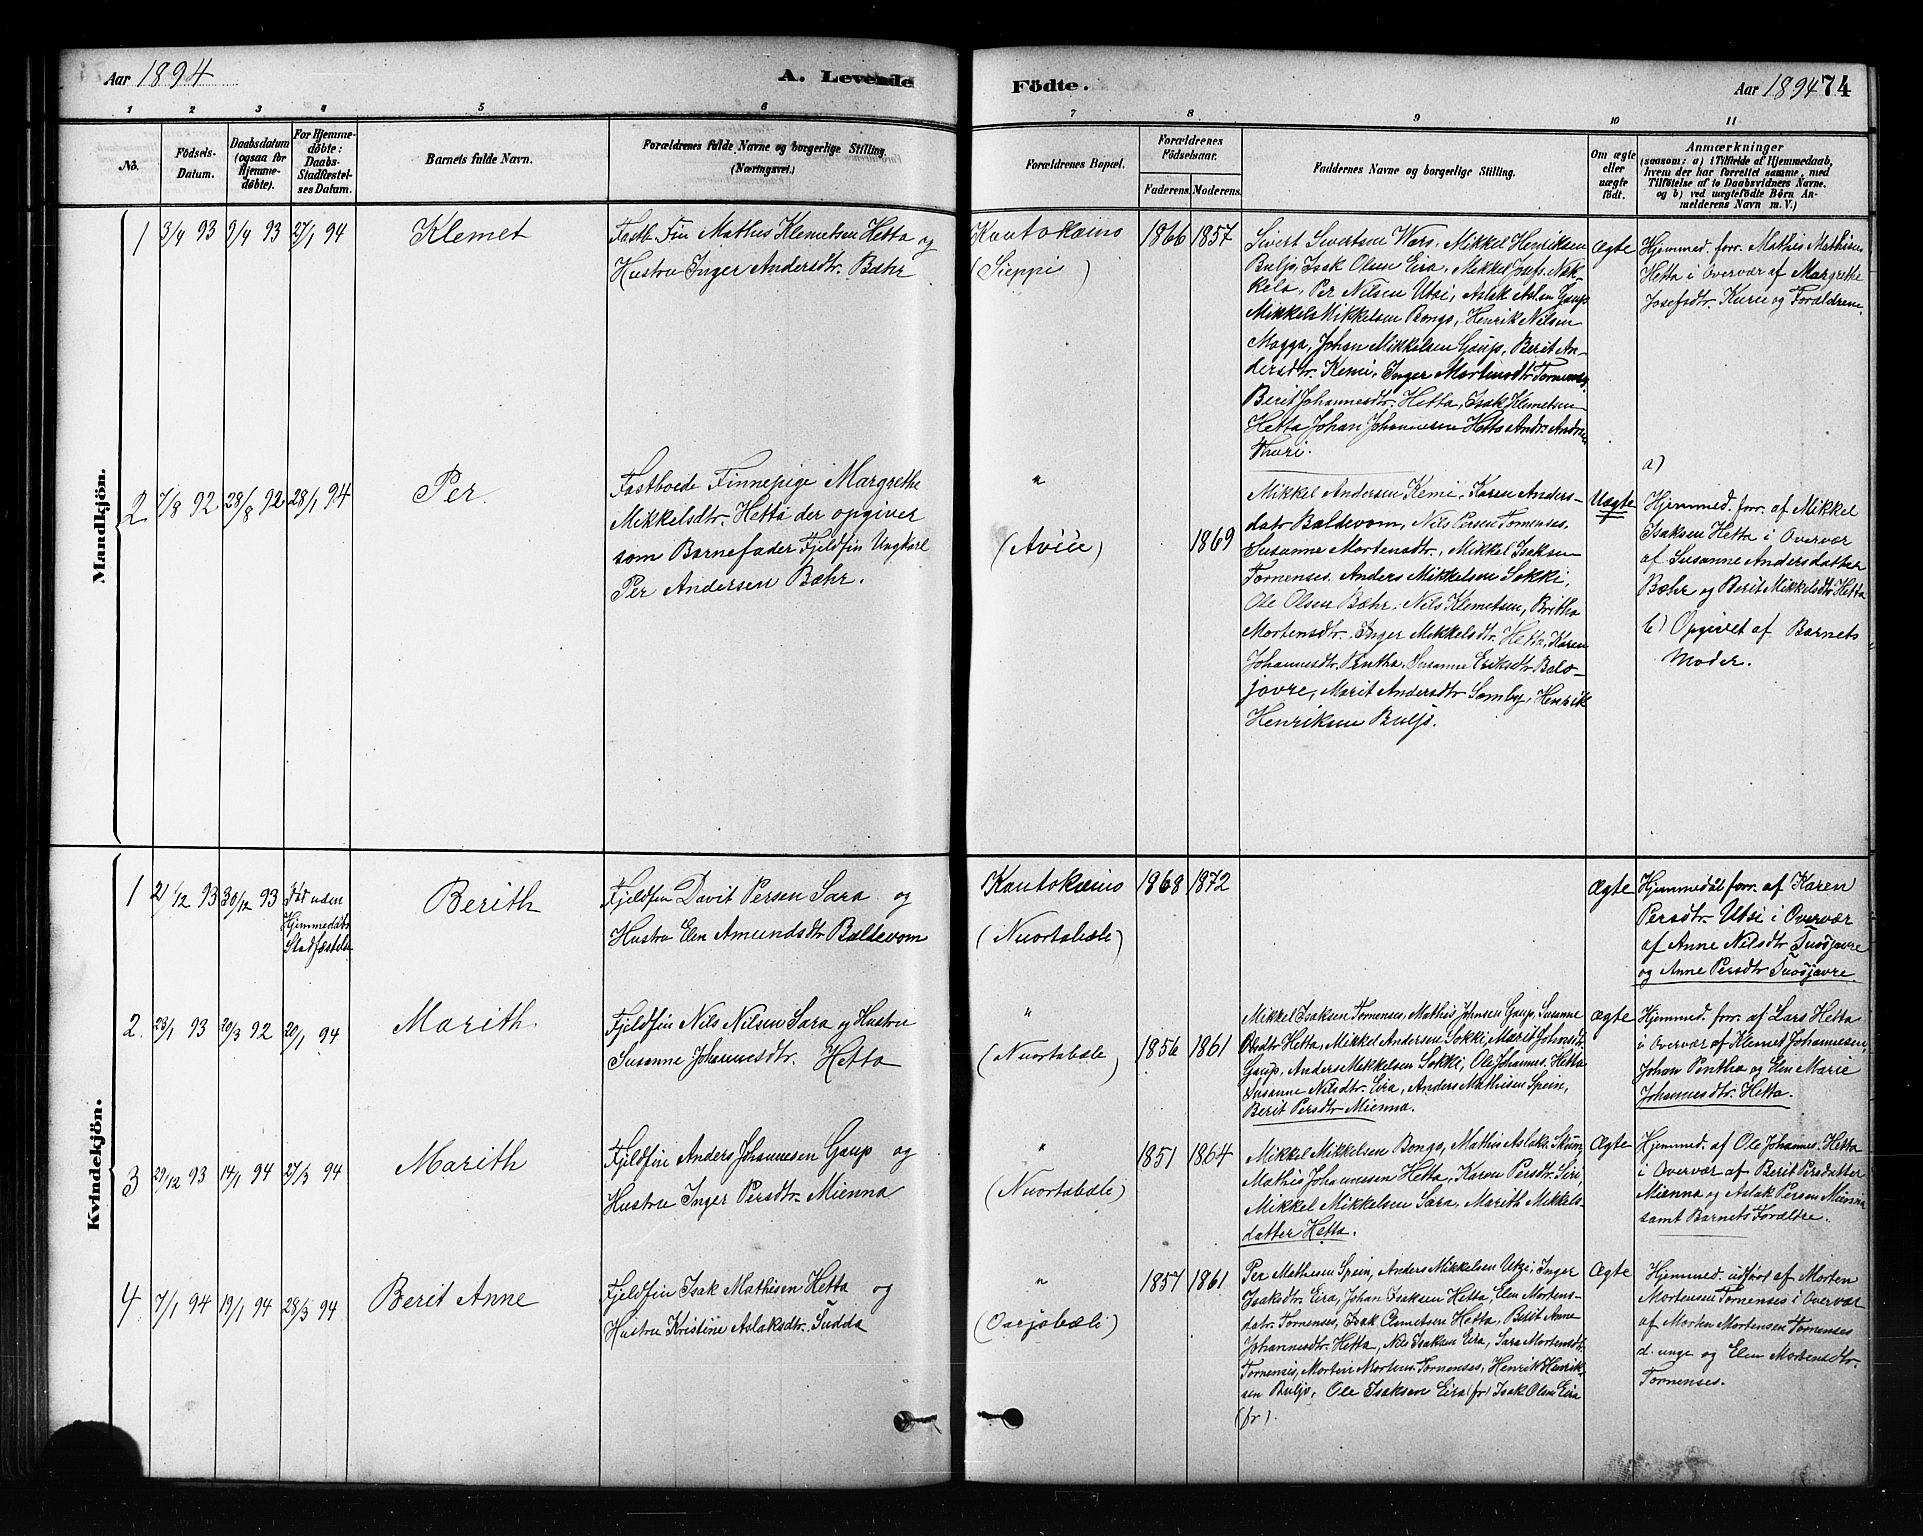 Aar 1894
A. Levende
Födte.
Aar 1894 74
1 2 3 4 5 6 7 8 9 10 11
No.
Födsels-
Datum.
Daabsdatum
(ogsaa for
Hjemme-
döbte).
For Hjemme-
döbte:
Daabs-
Stadfæstel-
ses Datum.
Barnets fulde Navn.
Forældrenes fulde Navne og borgerlige Stilling.
(Næringsvei.)
Forældrenes Bopæl.
Forældrenes
Födselsaar.
Faderens. Moderens.
Faddernes Navne og borgerlige Stilling.
Om ægte
eller
uægte
födt.
Anmærkninger
(saasom: a) i Tilfælde af Hjemmedaab,
hvem der har forrettet samme, med
Tilföielse af to Daabsvidners Navne,
og b) ved uægtefödte Börn An-
melderens Navn m. V.)
Mandkjön.
1 3/4 93 9/4 93 27/1 94
Klemet
Fastb. Fin Mathis Klemetsen Hetta og
Hustru Inger Andersdtr. Bæhr
Kautokeino
(Sieppi)
1866 1857
Sivert Sivertsen Wars, Mikkel Henriksen
Buljo, Isak Olsen Eira, Mikkel Josefs. Näk-
kela, Per Nilsen Utsi, Aslak Aslsen Gaup
Mikkel Mikkelsen Bongo, Henrik Nilsen
Magga, Johan Mikkelsen Gaup, Berit An-
dersdtr. Kemi, Inger Mortensdtr Tornenses,
Berit Johannesdtr. Hetta, Isak Klemetsen
Hetta Johan Johannesen Hetta Andr. Andersen
Thuri.
Ægte
Hjemmed. forr. Mathis Mathisen
Hetta i Overvær af Margrethe
Josefsdtr Kuru og Forældrene.
2 7/8 92 28/8 92 28/1 94
Per.
Fastboede Finnepige Margrethe
Mikkelsdtr. Hetta der opgiver
som Barnefader Fjeldfin Ungkarl
Per Andersen Bæhr.
"
(Aviie)
1869
Mikkel Andersen Kemi, Karen Anders-
datr Baldevom, Nils Persen Tornenses.
Susanne Mortensdtr., Mikkel Isaksen
Tornenses. Anders Mikkelsen Sokki,
Ole Olsen Bæhr. Nils Klemetsen, Britha
Mortensdtr. Inger Mikkelsdtr. Hetta, Karen
Johannesdtr. Pentha, Susanne Eriksdtr Bals-
javre, Marit Andersdtr Somby, Henrik
Henriksen Buljo.
Uægte
a)
Hjemmed. forr. af Mikkel
Isaksen Hetta i Overvær
af Susanne Andersdatter
Bæhr og Berit Mikkelsdtr Hetta
b) Opgivet af Barnets
Moder.
Kvindekjön.
1 21/12 93 30/12 93
Död uden
Hjemmedaabs
Stadfæstelse
Berith
Fjeldfin Davit Persen Sara og
Hustru Elen Amundsdtr Baldevom
Kautokeino
(Nuortabæle)
1868 1872
Ægte
Hjemmedåb forr. af Karen
Persdtr. Utsi i Overvær
af Anne Nilsdtr Suosjavre
og Anne Persdtr Suosjavre.
2. 23/1 93 20/3 92 20/1 94
Marith.
Fjeldfin Nils Nilsen Sara og Hustru
Susanne Johannesdtr. Hetta
"
(Nuortabæle)
1856 1861
Mikkel Isaksen Tornenses, Mathis Johnsen Gaup, Susanne
Olsdtr Hetta, Mikkel Andersen Sokki, Marit Johansdt.
Gaup, Anders Mikkelsen Sokki, Ole Johannes. Hetta
Susanne Nilsdtr. Eira, Anders Mathisen Spein,
Berit Persdtr Mienna.
Ægte
Hjemmed. forr. af Lars Hetta
i Overvær af Klemet Johannesen,
Johan Pentha og Elen Marie
Johannesdtr. Hetta.
3 29/12 93 14/1 94 27/3 94
Marith
Fjeldfin Anders Johannesen Gaup og
Hustru Inger Persdtr. Mienna
"
(Nuortabæle)
1851 1864
Mikkel Mikkelsen Bongo, Mathis Aslaks. Skum,
Mathis Johannesen Hetta, Karen Persdtr. Siri,
Mikkel Mikkelsen Sara, Marith Mikkels-
datter Hetta.
Ægte
Hjemmed. af Ole Johannes. Hetta
i Overvær af Berit Persdatter
Mienna og Aslak Persen Mienna
samt Barnets Forældre.
4 7/1 94 19/1 94 28/3 94
Berit Anne
Fjeldfin Isak Mathisen Hetta og
Hustru Kristine Aslaksdtr. Sudda
"
(Oarjabæli)
1857 1861
Per Mathisen Spein, Anders Mikkelsen Utzi, Inger
Isaksdtr. Eira, Johan Isaksen Hetta, Elen Mortens-
datr. Tornenses, Isak Clemetsen Hetta, Berit Anne
Johannesdtr. Hetta, Nils Isaksen Eira, Sara Mortensdtr
Tornensis, Morten Mortens. Tornenses, Henrik Henrik-
sen Buljo, Ole Isaksen Eira (fr) Isak Olsen Eira
(fr).
Ægte
Hjemmed. udført af Morten
Mortensen Tornenses i Overvær
af Morten Mortensen Tornenses
d. unge og Elen Mortensdtr.
Tornenses.